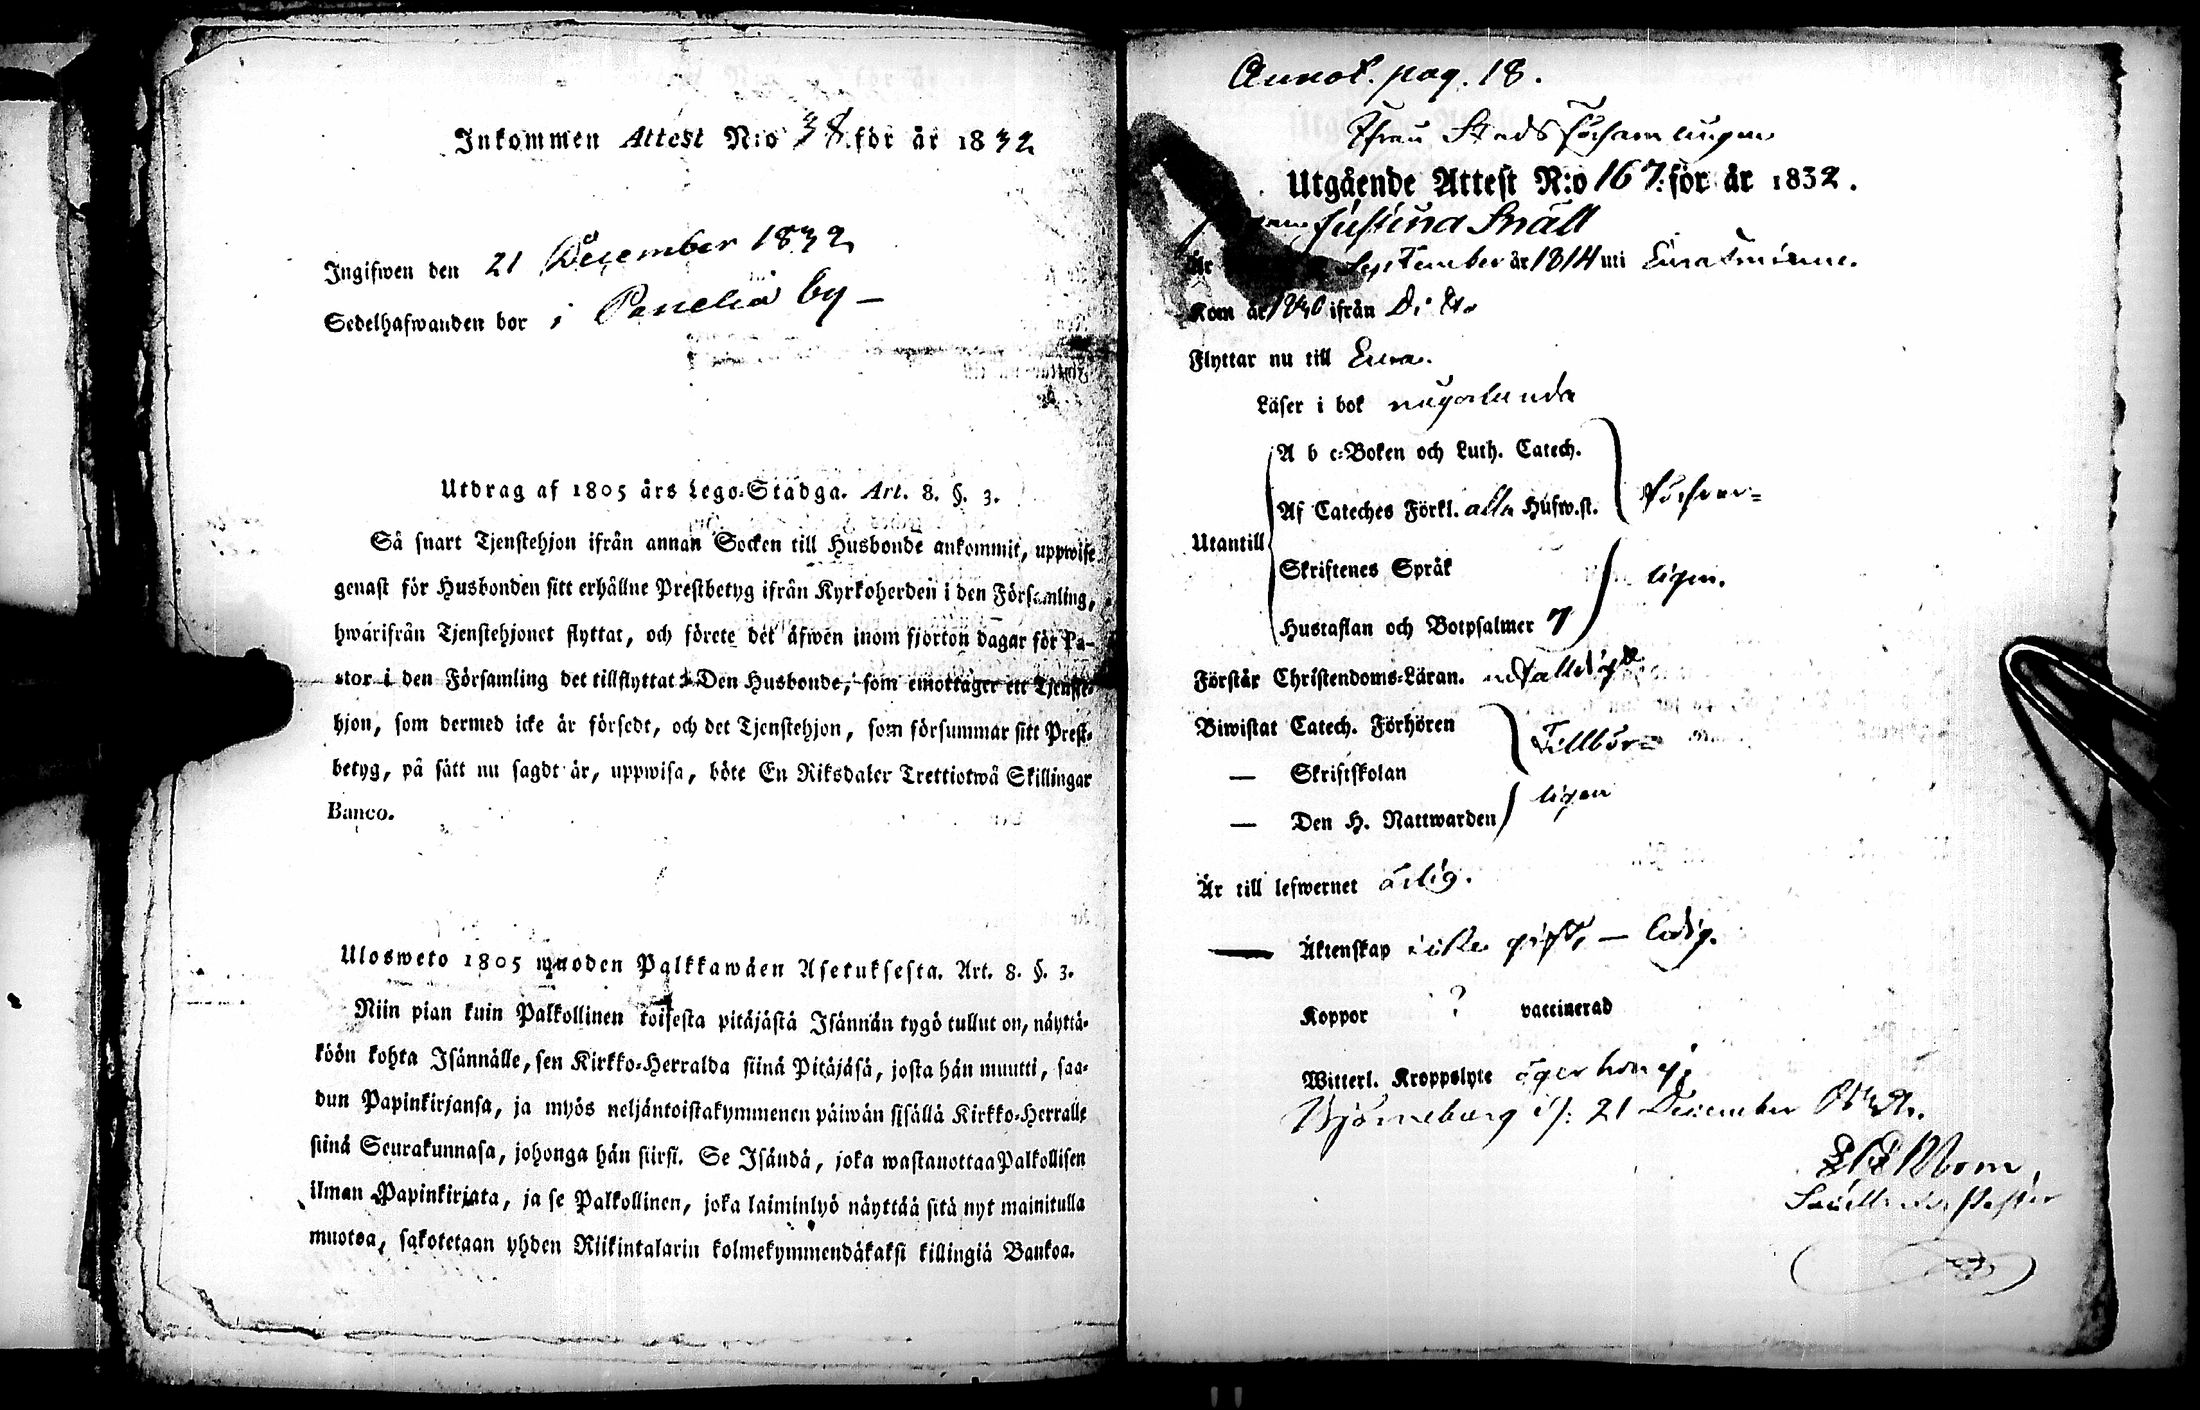 Inkommen Attest N:o 38 för år 1832
Ingifwen den 21 December 1832
Sedelhafwanden bor i Panelia by —
Utdrag af 1805 års Lego-Stadga. Art. 8. §. 3.
Så snart Tjenstehjon ifrån annan Socken till Husbonde ankommit, uppwise
genast för Husbonden sitt erhållne Prestbetyg ifrån Kyrkoherden i den Församling,
hwarifrån Tjenstehjonet flyttat, och förete det äfwen inom fjorton dagar för Pa-
stor i den Församling det tillflyttat. Den Husbonde, som emottager ett Tjenste-
hjon, som dermed icke är försedt, och det Tjenstehjon, som försummar sitt Prest-
betyg, på sätt nu sagdt är, uppwisa, böte En Riksdaler Trettiotwå Skillingar
Banco.
Ulosweto 1805 wuoden Palkkawäen Asetuksesta. Art. 8. §. 3.
Niin pian kuin Palkollinen toisesta pitäjästä Isännän tygö tullut on, näyttä-
köön kohta Isännälle, sen Kirkko-Herralda siinä Pitäjäsä, josta hän muutti, saa-
dun Papinkirjansa, ja myös neljäntoistakymmenen päiwän sisällä Kirkko-Herralle
siinä Seurakunnasa, johonga hän siirsi. Se Isändä, joka wastanottaa Palkollisen
ilman Papinkirjata, ja se Palkollinen, joka laiminlyö näyttää sitä nyt mainitulla
muotoa, sakotetaan yhden Riikintalarin kolmekymmendäkaksi killingiä Bankoa.
Annot. pag. 18.
Ifrån Stads Församlingen
Utgående Attest N:o 167. för år 1832.
Justina Snäll
Är September år 1814 uti Eura
Kom år ifrån Dito
Flyttar nu till Eura.
Läser i bok någorlunda
A b c-Boken och Luth. Catech.
Af Cateches Förkl. alla Hufw.st. Försvar-
Utantill
Skriftenes Språk ligen.
Hustaflan och Botpsalmer 7
Förstår Christendoms-Läran.
Biwistat Catech. Förhören Tillbör-
— Skriftskolan
— Den H. Nattwarden ligen
Är till lefwernet ärlig.
— Äktenskap icke gift, — ledig.
Koppor ? vaccinerad
Witterl. Kroppslyte äger hon ej;
Björneborg d. 21 December 1832.